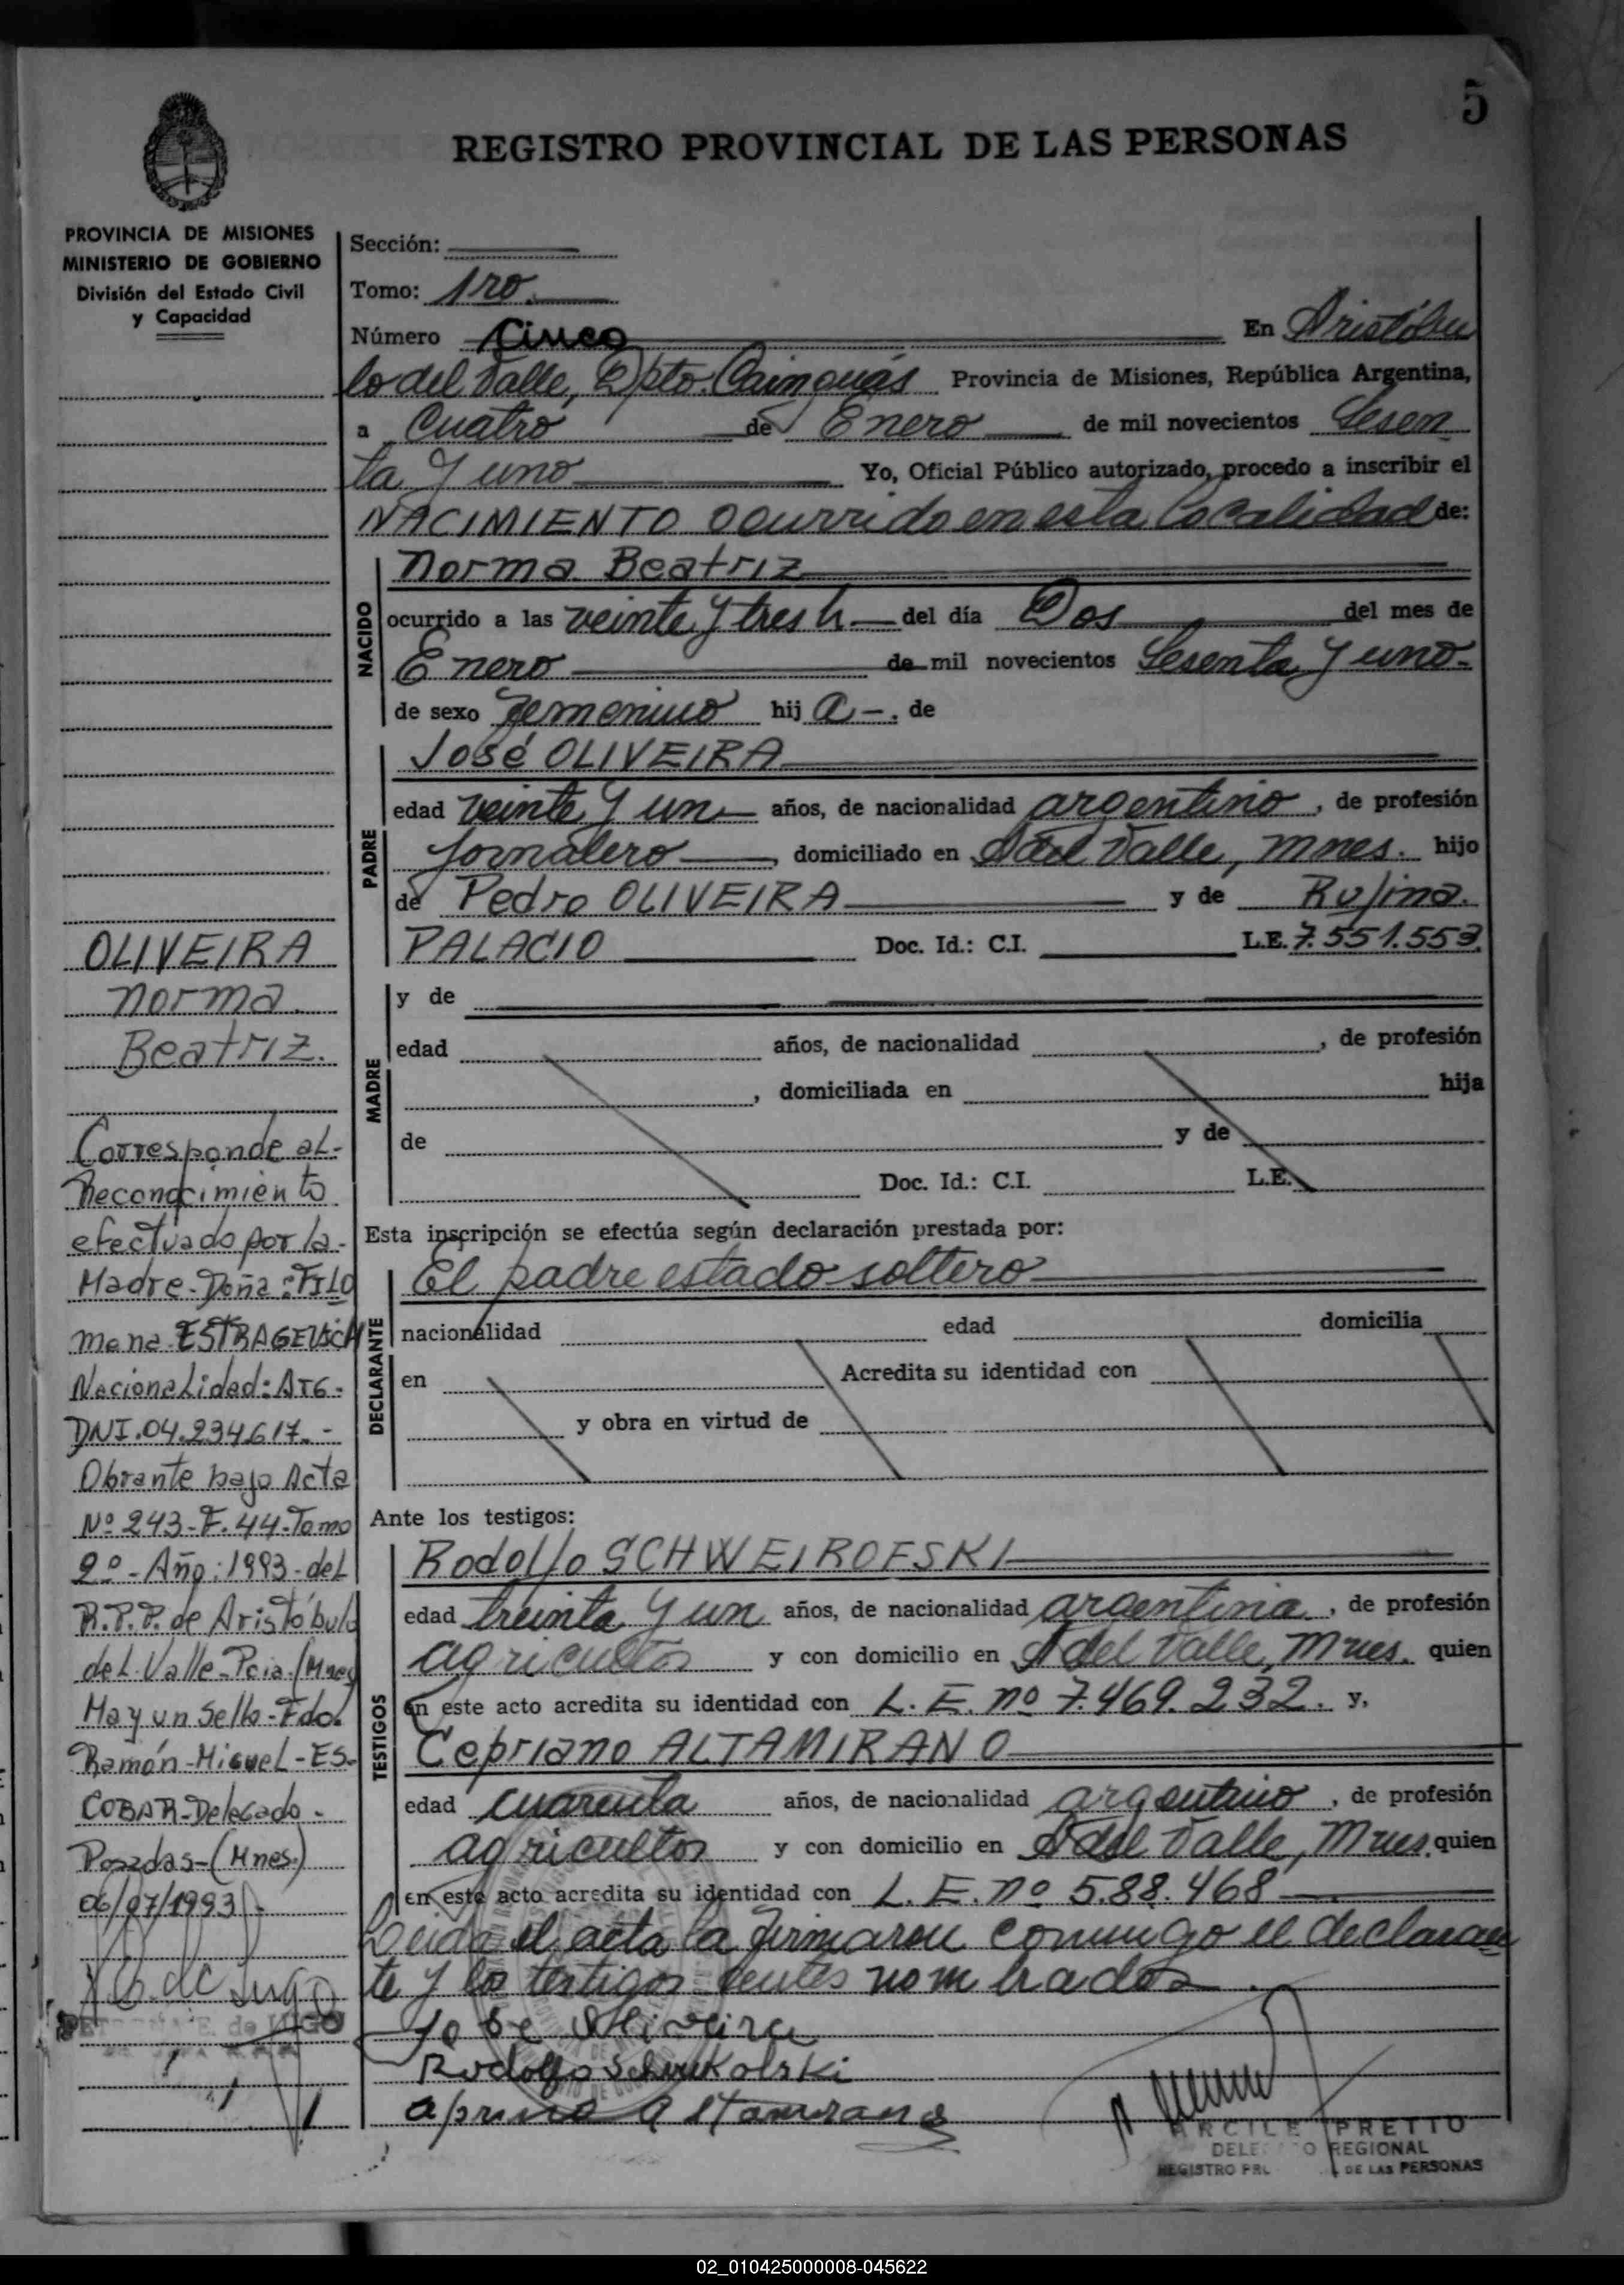 5
REGISTRO PROVINCIAL DE LAS PERSONAS
PROVINCIA DE MISIONES
MINISTERIO DE GOBIERNO
División del Estado Civil
y Capacidad
Sección:
Tomo: 1ro.
Número Cinco En Aristóbu
lo del Valle, Dpto. Cainguás Provincia de Misiones, República Argentina,
a Cuatro de Enero de mil novecientos Sesen
ta y uno Yo, Oficial Público autorizado, procedo a inscribir el
NACIMIENTO ocurrido en esta localidad de:
NACIDO
Norma Beatriz
ocurrido a las veinte y tres h. del día Dos del mes de
Enero de mil novecientos Sesenta y uno.
de sexo femenino hij a-. de
PADRE
José OLIVEIRA
edad veinte y un años, de nacionalidad argentino, de profesión
jornalero, domiciliado en A del Valle, Mnes. hijo
de Pedro OLIVEIRA y de Rufina.
PALACIO Doc. Id.: C.I. L.E. 7.551.553.
MADRE
y de
edad años, de nacionalidad , de profesión
, domiciliada en hija
de y de
Doc. Id.: C.I. L.E.
Esta inscripción se efectúa según declaración prestada por:
DECLARANTE
El padre estado soltero
nacionalidad edad domicilia
en Acredita su identidad con
y obra en virtud de
Ante los testigos:
TESTIGOS
Rodolfo SCHWEIROFSKI
edad treinta y un años, de nacionalidad argentina, de profesión
agricultor y con domicilio en A del Valle, Mnes. quien
en este acto acredita su identidad con L.E. nº 7.469.232. y,
Cepriano ALTAMIRANO
edad cuarenta años, de nacionalidad argentino, de profesión
agricultor y con domicilio en A del Valle, Mnes. quien
en este acto acredita su identidad con L.E. nº 5.88.468
Leida el acta la firmaron conmigo el declaran
te y los testigos nombrados.
Jose Oliveira
Rodolfo
Altamirano
ARCILE PRETTO
REGIONAL
DE LAS PERSONAS
OLIVEIRA
Norma
Beatriz.
Corresponde al-
Reconocimiento
efectuado por la-
Madre-Doña: FILO
mena ESTRAGEVICH
Nacionalidad: ARG-
DNI.04.234617.-
Obrante bajo Acta
Nº 243-F.44-Tomo
2º-Año: 1993-del
R.P.P. de Aristóbulo
del Valle-Pcia.(Mnes)
Hay un Sello-Fdo.
Ramón-Miguel-ES-
COBAR-Delegado-
Posadas-(Mnes.)
06/07/1993
de Lugo
E. de LUGO
02_010425000008-045622